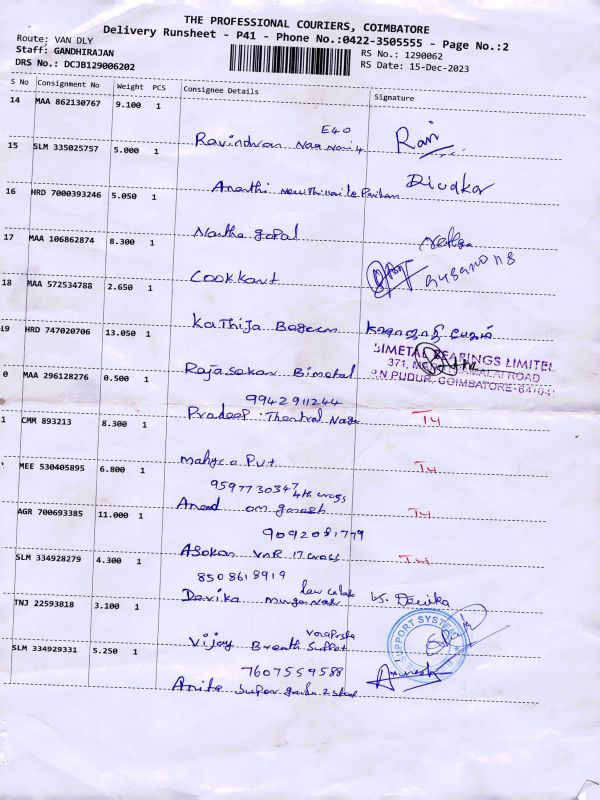 THE PROFESSIONAL COURIERS, COIMBATORE
Delivery Runsheet - P41 - Phone No.:0422-3505555 - Page No.:2
Route: VAN DLY
Staff: GANDHIRAJAN
DRS No.: DCJB129006202
RS No.: 1290062
RS Date: 15-Dec-2023
S No Consignment No Weight PCS Consignee Details Signature
14 MAA 862130767 9.100 1
E40
Ravindran Ravi
15 SLM 335025757 5.000 1
Ananthi Divakar
16 HRD 7000393246 5.050 1
Nantha gopal
17 MAA 106862874 8.300 1
Cookkant
18 MAA 572534788 2.650 1
Kathija Begum
19 HRD 747020706 13.050 1
Rajasekar Bimetal
BIMETAL BEARINGS LIMITED
0 MAA 296128276 0.500 1
9942911244
Pradeep Thentral Nagar
1 CMM 893213 8.300 1
Mahyco Pvt
MEE 530405895 6.800 1
9597730347 4th cross
Anand om ganesh
AGR 700693385 11.000 1
9092081779
Asokan VNR 17 cross
SLM 334928279 4.300 1
8508618919
Devika K. Devika
TNJ 22593818 3.100 1
Vijay Breath
SUPPORT SYSTEM
SLM 334929331 5.250 1
7607559588
Anita Super